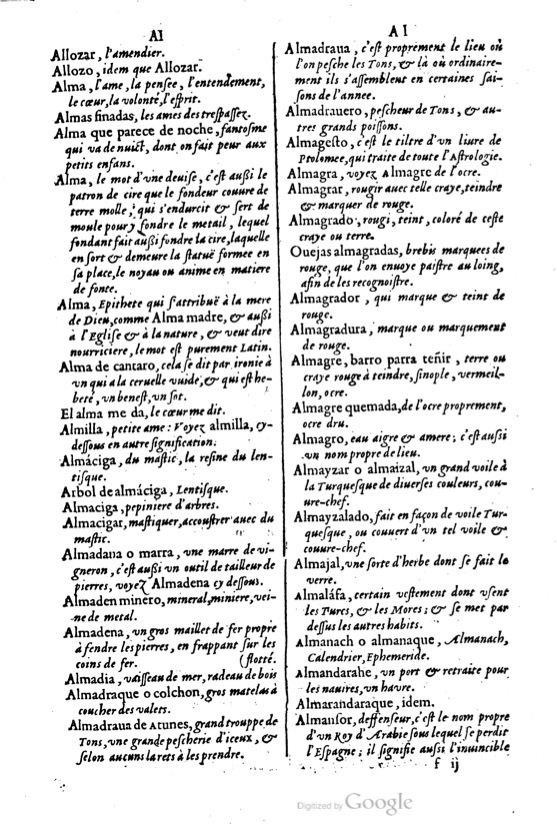 Al
Allozar, l'amendier.
Allozo, idem que Allozar.
Alma, l'ame, la pensee, l'entendement,
le cœur, la volonté, l'esprit.
Almas finadas, les ames des trespassez.
Alma que parece de noche, fantosme
qui va de nuict, dont on fait peur aux
petits enfans.
Alma, le mot d'vne deuise, c'est aussi le
patron de cire que le fondeur couure de
terre molle, qui s'endurcit & sert de
moule pour y fondre le metail, lequel
fondant fait aussi fondre la cire, laquelle
en sort & demeure la statuë formee en
sa place, le noyau ou anime en matiere
de fonte.
Alma, Epithete qui s'attribuë à la mere
de Dieu, comme Alma madre, & aussi
à l'Eglise & à la nature, & veut dire
nourriciere, le mot est purement Latin.
Alma de cantaro, cela se dit par ironie à
vn qui a la ceruelle vuide, & qui est he-
beté, vn benest, vn sot.
El alma me da, le cœur me dit.
Almilla, petite ame: Voyez almilla, cy-
dessous en autre signification.
Almáciga, du mastic, la resine du len-
tisque.
Arbol de almáciga, Lentisque.
Almaciga, pepiniere d'arbres.
Almacigar, mastiquer, accoustrer auec du
mastic.
Almadana o marra, vne marre de vi-
gneron, c'est aussi vn outil de tailleur de
pierres, voyez Almadena cy dessous.
Almaden minero, mineral, miniere, vei-
ne de metal.
Almadena, vn gros maillet de fer propre
à fendre les pierres, en frappant sur les
coins de fer. (flotté.
Almadia, vaisseau de mer, radeau de bois
Almadraque o colchon, gros matelas à
coucher des valets.
Almadraua de Atunes, grand trouppe de
Tons, vne grande pescherie d'iceux, &
selon aucuns la rets à les prendre.
A I
Almadraua, c'est proprement le lieu où
l'on pesche les Tons, & là où ordinaire-
ment ils s'assemblent en certaines sai-
sons de l'annee.
Almadrauero, pescheur de Tons, & au-
tres grands poissons.
Almagesto, c'est le tiltre d'vn liure de
Ptolomee, qui traite de toute l'Astrologie.
Almagra, voyez Almagre de l'ocre.
Almagrar, rougir auec telle craye, teindre
& marquer de rouge.
Almagrado, rougi, teint, coloré de ceste
craye ou terre.
Ouejas almagradas, brebis marquees de
rouge, que l'on enuoye paistre au loing,
afin de les recognoistre.
Almagrador, qui marque & teint de
rouge.
Almagradura, marque ou marquement
de rouge.
Almagre, barro parra teñir, terre ou
craye rouge à teindre, sinople, vermeil-
lon, ocre.
Almagre quemada, de l'ocre proprement,
ocre dru.
Almagro, eau aigre & amere; c'est aussi
vn nom propre de lieu.
Almayzar o almaizal, vn grand voile à
la Turquesque de diuerses couleurs, cou-
ure-chef.
Almayzalado, fait en façon de voile Tur-
quesque, ou couuert d'vn tel voile &
couure-chef.
Almajal, vne sorte d'herbe dont se fait le
verre.
Almaláfa, certain vestement dont vsent
les Turcs, & les Mores; & se met par
dessus les autres habits.
Almanach o almanaque, Almanach,
Calendrier, Ephemeride.
Almandarahe, vn port & retraite pour
les nauires, vn havre.
Almarandaraque, idem.
Almansor, deffenseur, c'est le nom propre
d'vn Roy d'Arabie sous lequel se perdit
l'Espagne; il signifie aussi l'inuincible
f ij
Digitized by Google